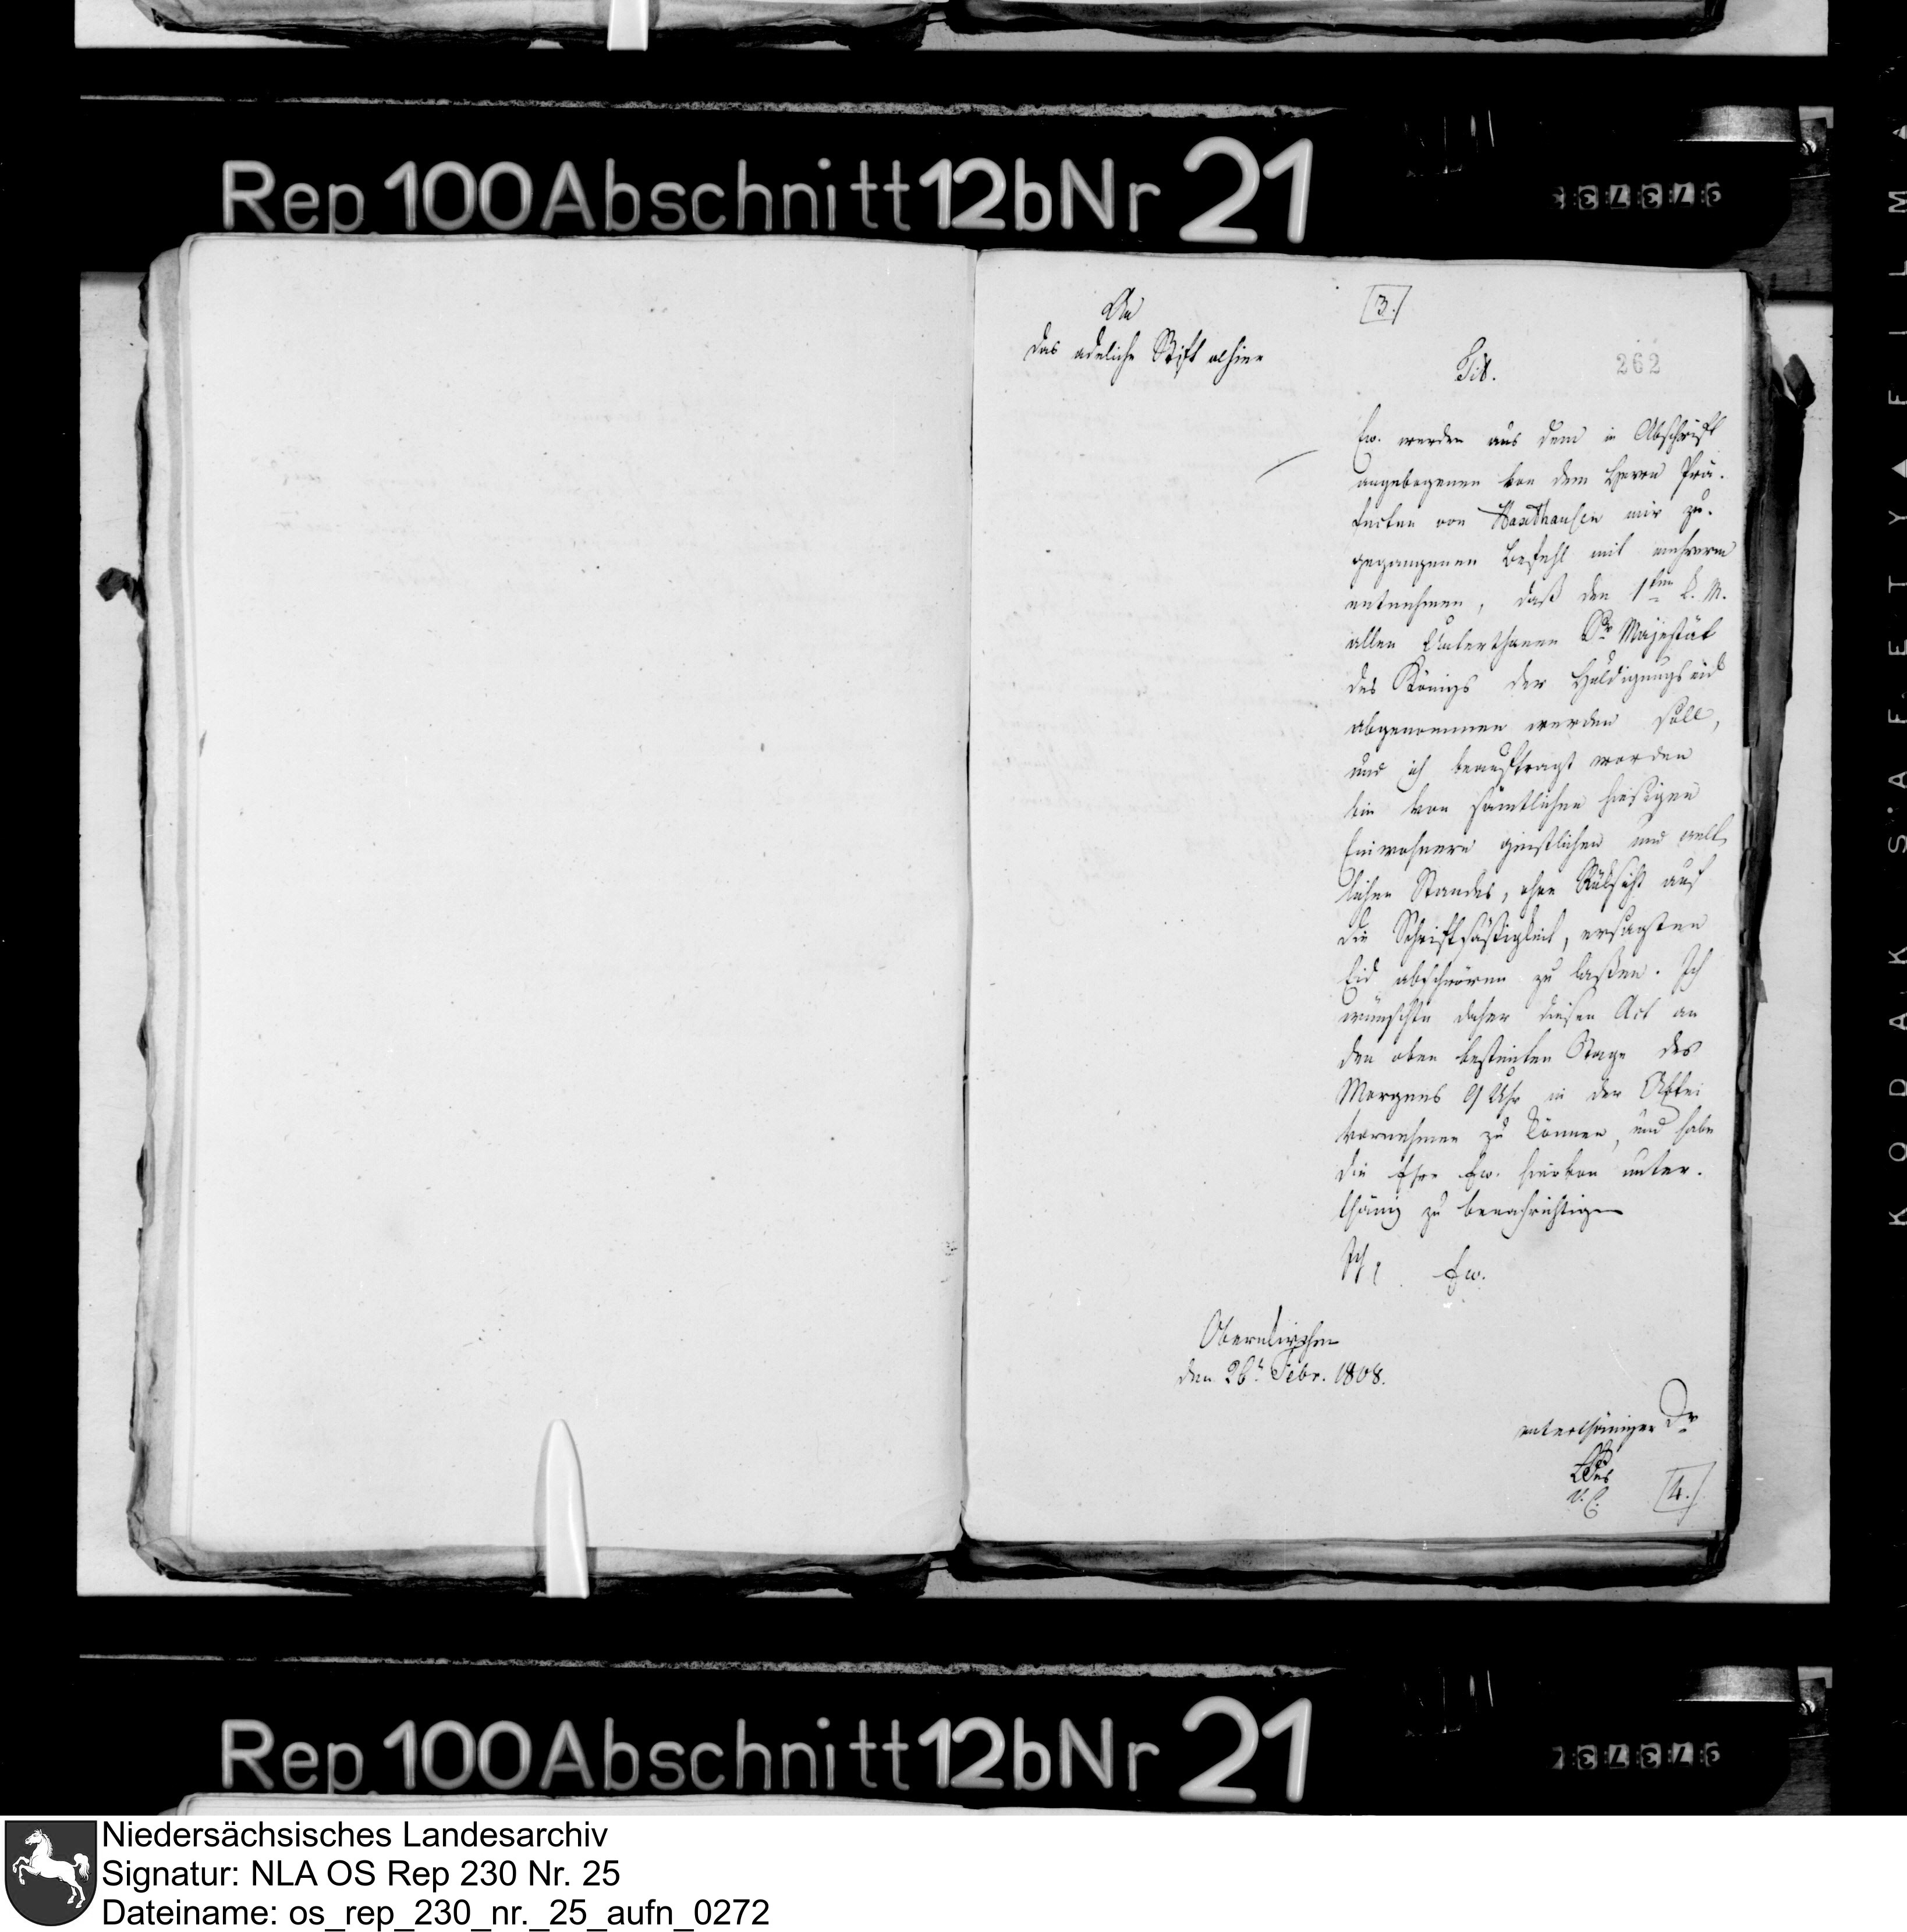 Rep. 100 Abschnitt 12b Nr 21
[3.]
An
das adeliche Stift alhier
262
Tit.
Ew. werden aus dem in Abschrift
angebogenen von dem Herrn Prä-
fecten von Haxthausen mir zu-
gegangenen Befehl mit mehrerm
entnehmen, daß den 1ten k. M.
allen Unterthanen Sr Majestät
des Königs der Huldigungseid
abgenommen werden soll,
und ich beauftragt worden
bin von sämtlichen hiesigen
Einwohnern geistlichen und welt-
lichen Standes, ohne Rüksicht auf
die Schriftsäßigkeit, ersagten
Eid abschwören zu laßen. Ich
wünschte daher diesen Act an
den oben bestimten Tage des
Morgens 9 Uhr in der Abtei
vornehmen zu können, und habe
die Ehre Ew. hievon unter-
thänig zu benachrichtigen
Ich Ew.
Obernkirchen
den 26t Febr. 1808.
unterthäniger Dr
[4.]
Rep. 100 Abschnitt 12b Nr 21
KODAK SAFETY FILM
Niedersächsisches Landesarchiv
Signatur: NLA OS Rep 230 Nr. 25
Dateiname: os_rep_230_nr._25_aufn_0272